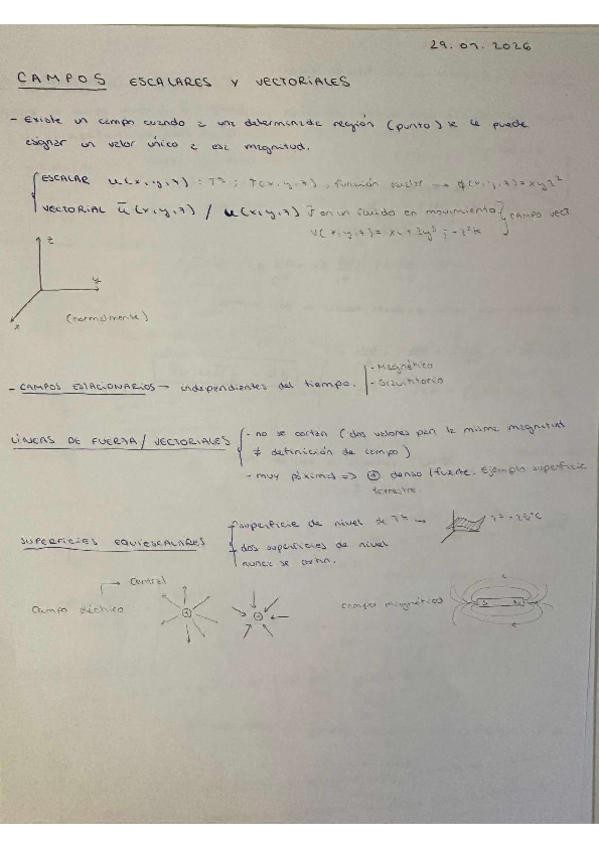 29.01.2026
CAMPOS ESCALARES Y VECTORIALES
- Existe un campo cuando a una determinada región (punto) se le puede
asignar un valor único a esa magnitud.
ESCALAR u(x,y,z) : Tª ; T(x,y,z), función escalar → ϕ(x,y,z)=xyz²
VECTORIAL ū(x,y,z) / u(x,y,z) v̄ en un fluido en movimiento } campo vect
V(x,y,z)= xi + 3y³j - z²k
z
y
x
(normalmente)
- CAMPOS ESTACIONARIOS → independientes del tiempo.
- Magnético
- Gravitatorio
LÍNEAS DE FUERZA / VECTORIALES
- no se cortan (dos valores para la misma magnitud
≠ definición de campo)
- muy póximas => ⊕ denso / fuerte. Ejemplo superficie
terrestre.
SUPERFICIES EQUIESCALARES
superficie de nivel de Tª → Tª = 25°C
dos superficies de nivel
nunca se cortan.
Campo eléctrico → central
+
campo magnético
S N